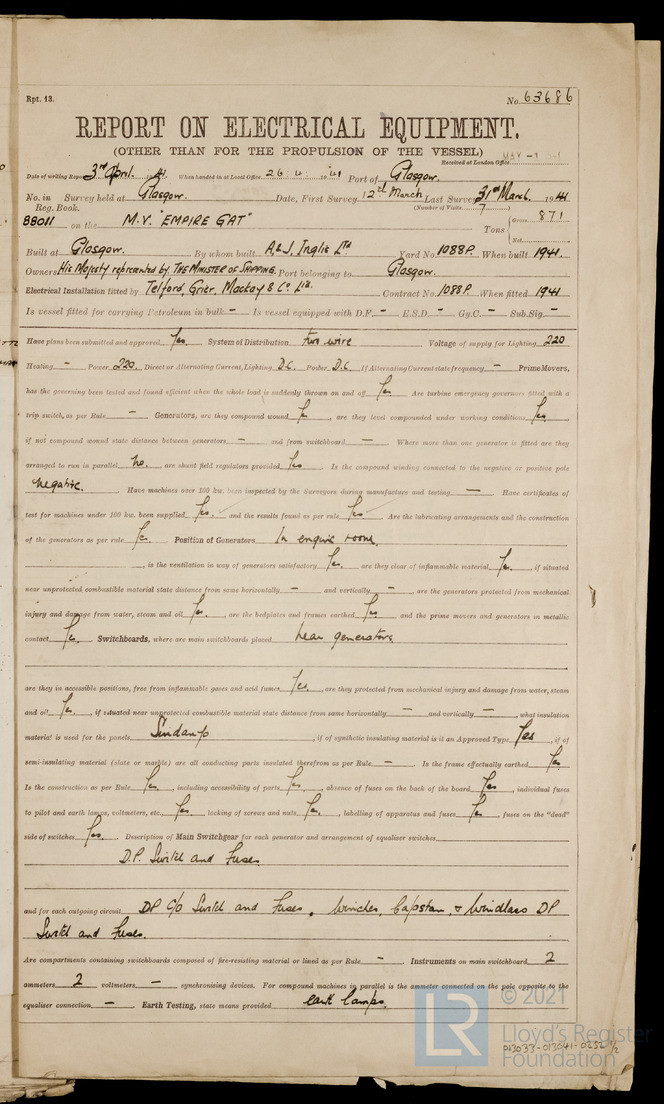 Rpt. 13.
No. 63686
REPORT ON ELECTRICAL EQUIPMENT.
(OTHER THAN FOR THE PROPULSION OF THE VESSEL)
Received at London Office MAY
Date of writing Report 3rd April. 1941. When handed in at Local Office 26. 4. 1941 Port of Glasgow.
No. in Survey held at Glasgow. Date, First Survey 12th March Last Survey 31st March. 1941
Reg. Book. (Number of Visits 7)
88011 on the M.V. "EMPIRE GAT" Tons { Gross 871
Net
Built at Glasgow. By whom built A & J. Inglis Ltd Yard No. 1088P. When built 1941.
Owners His Majesty represented by THE MINISTER OF SHIPPING. Port belonging to Glasgow.
Electrical Installation fitted by Telford Grier, Mackay & Co Ltd. Contract No. 1088P. When fitted 1941
Is vessel fitted for carrying Petroleum in bulk - Is vessel equipped with D.F. - E.S.D. - Gy.C. - Sub.Sig. -
Have plans been submitted and approved Yes. System of Distribution two wire Voltage of supply for Lighting 220
Heating - Power 220. Direct or Alternating Current, Lighting D.C. Power D.C If Alternating Current state frequency - Prime Movers,
has the governing been tested and found efficient when the whole load is suddenly thrown on and off Yes Are turbine emergency governors fitted with a
trip switch, as per Rule - Generators, are they compound wound Yes, are they level compounded under working conditions Yes,
if not compound wound state distance between generators - and from switchboard - Where more than one generator is fitted are they
arranged to run in parallel No., are shunt field regulators provided Yes Is the compound winding connected to the negative or positive pole
negative. Have machines over 100 kw. been inspected by the Surveyors during manufacture and testing - Have certificates of
test for machines under 100 kw. been supplied Yes. and the results found as per rule Yes Are the lubricating arrangements and the construction
of the generators as per rule Yes. Position of Generators In engine room.
, is the ventilation in way of generators satisfactory Yes. are they clear of inflammable material Yes, if situated
near unprotected combustible material state distance from same horizontally - and vertically -, are the generators protected from mechanical
injury and damage from water, steam and oil Yes., are the bedplates and frames earthed Yes and the prime movers and generators in metallic
contact Yes. Switchboards, where are main switchboards placed near generators
are they in accessible positions, free from inflammable gases and acid fumes Yes., are they protected from mechanical injury and damage from water, steam
and oil Yes., if situated near unprotected combustible material state distance from same horizontally - and vertically -, what insulation
material is used for the panels Sindanyo, if of synthetic insulating material is it an Approved Type Yes, if of
semi-insulating material (slate or marble) are all conducting parts insulated therefrom as per Rule - Is the frame effectually earthed Yes
Is the construction as per Rule Yes., including accessibility of parts Yes, absence of fuses on the back of the board Yes, individual fuses
to pilot and earth lamps, voltmeters, etc. Yes. locking of screws and nuts Yes., labelling of apparatus and fuses Yes, fuses on the "dead"
side of switches Yes. Description of Main Switchgear for each generator and arrangement of equaliser switches
D.P. Switch and Fuses.
and for each outgoing circuit DP C/O Switch and Fuses. Winches, Capstan, & Windlass DP
Switch and Fuses.
Are compartments containing switchboards composed of fire-resisting material or lined as per Rule - Instruments on main switchboard 2
ammeters 2 voltmeters - synchronising devices. For compound machines in parallel is the ammeter connected on the pole opposite to the
equaliser connection - Earth Testing, state means provided earth lamps.
© 2021
LR Lloyd's Register
Foundation
013033-013041-0252 1/2